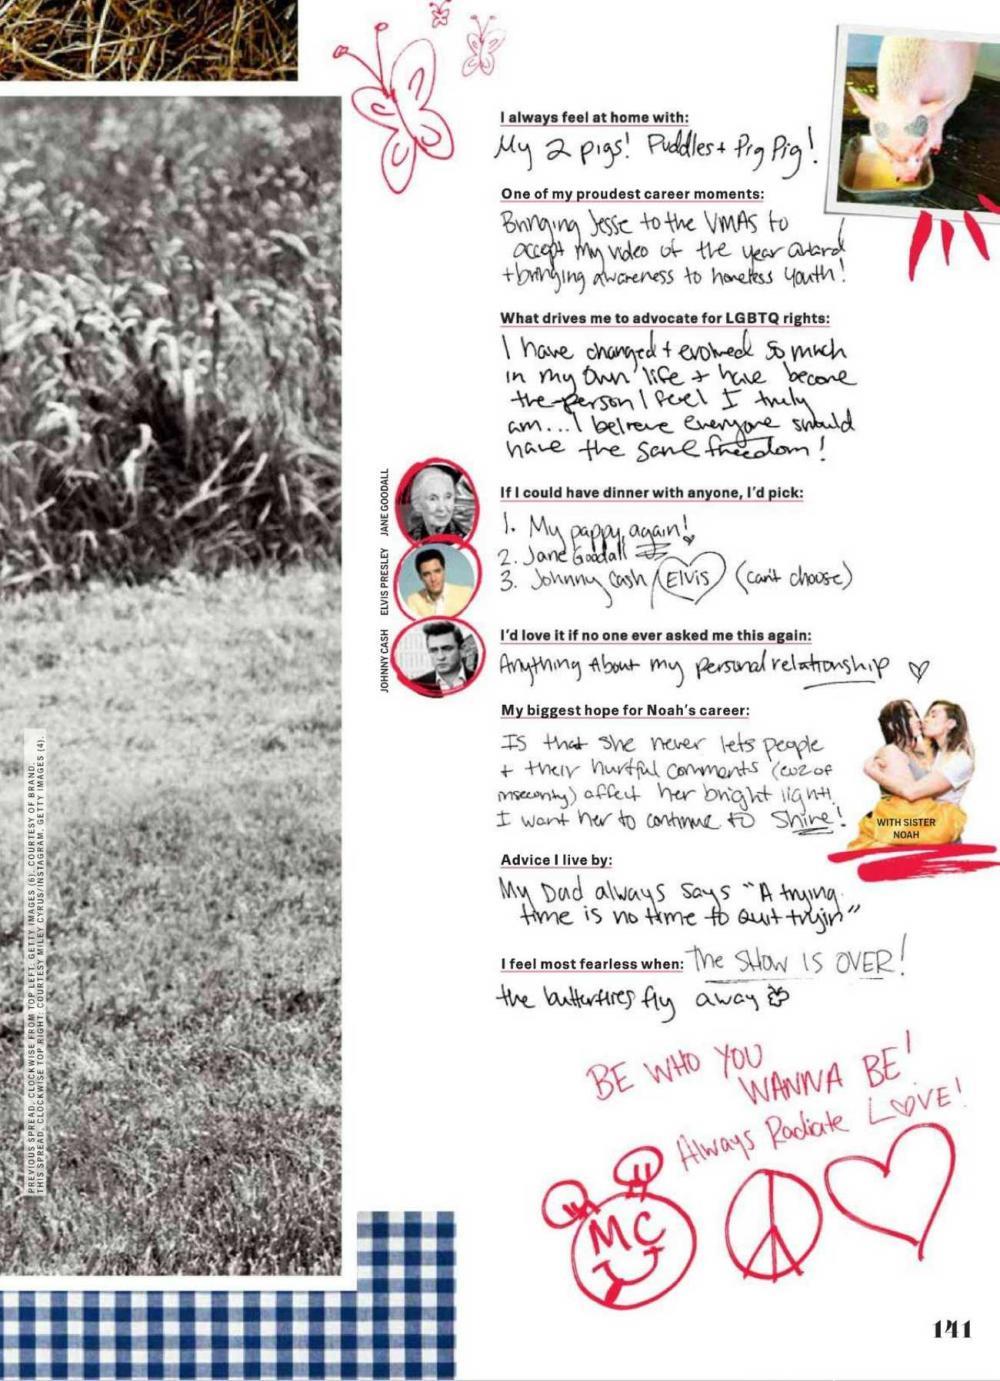 I always feel at home with:
My 2 pigs! Puddles + Pig Pig!
One of my proudest career moments:
Bringing Jesse to the VMAs to
accept my video of the year award
+ bringing awareness to homeless youth!
What drives me to advocate for LGBTQ rights:
I have changed + evolved so much
in my own life + have become
the person I feel I truly
am... I believe everyone should
have the same freedom!
JANE GOODALL
ELVIS PRESLEY
JOHNNY CASH
If I could have dinner with anyone, I'd pick:
1. My pappy, again!
2. Jane Goodall
3. Johnny Cash / Elvis (can't choose)
I'd love it if no one ever asked me this again:
Anything About my personal relationship
My biggest hope for Noah's career:
Is that she never lets people
+ their hurtful comments (cuz of
insecurity) affect her bright light!
I want her to continue to Shine!
WITH SISTER
NOAH
Advice I live by:
My Dad always says "A trying
time is no time to quit tryin"
I feel most fearless when: The SHOW IS OVER!
the butterflies fly away
BE WHO YOU
WANNA BE!
Always Radiate LOVE!
MC
PREVIOUS SPREAD, CLOCKWISE FROM TOP LEFT: GETTY IMAGES (6). COURTESY OF BRAND.
THIS SPREAD, CLOCKWISE TOP RIGHT: COURTESY MILEY CYRUS/INSTAGRAM. GETTY IMAGES (4).
141